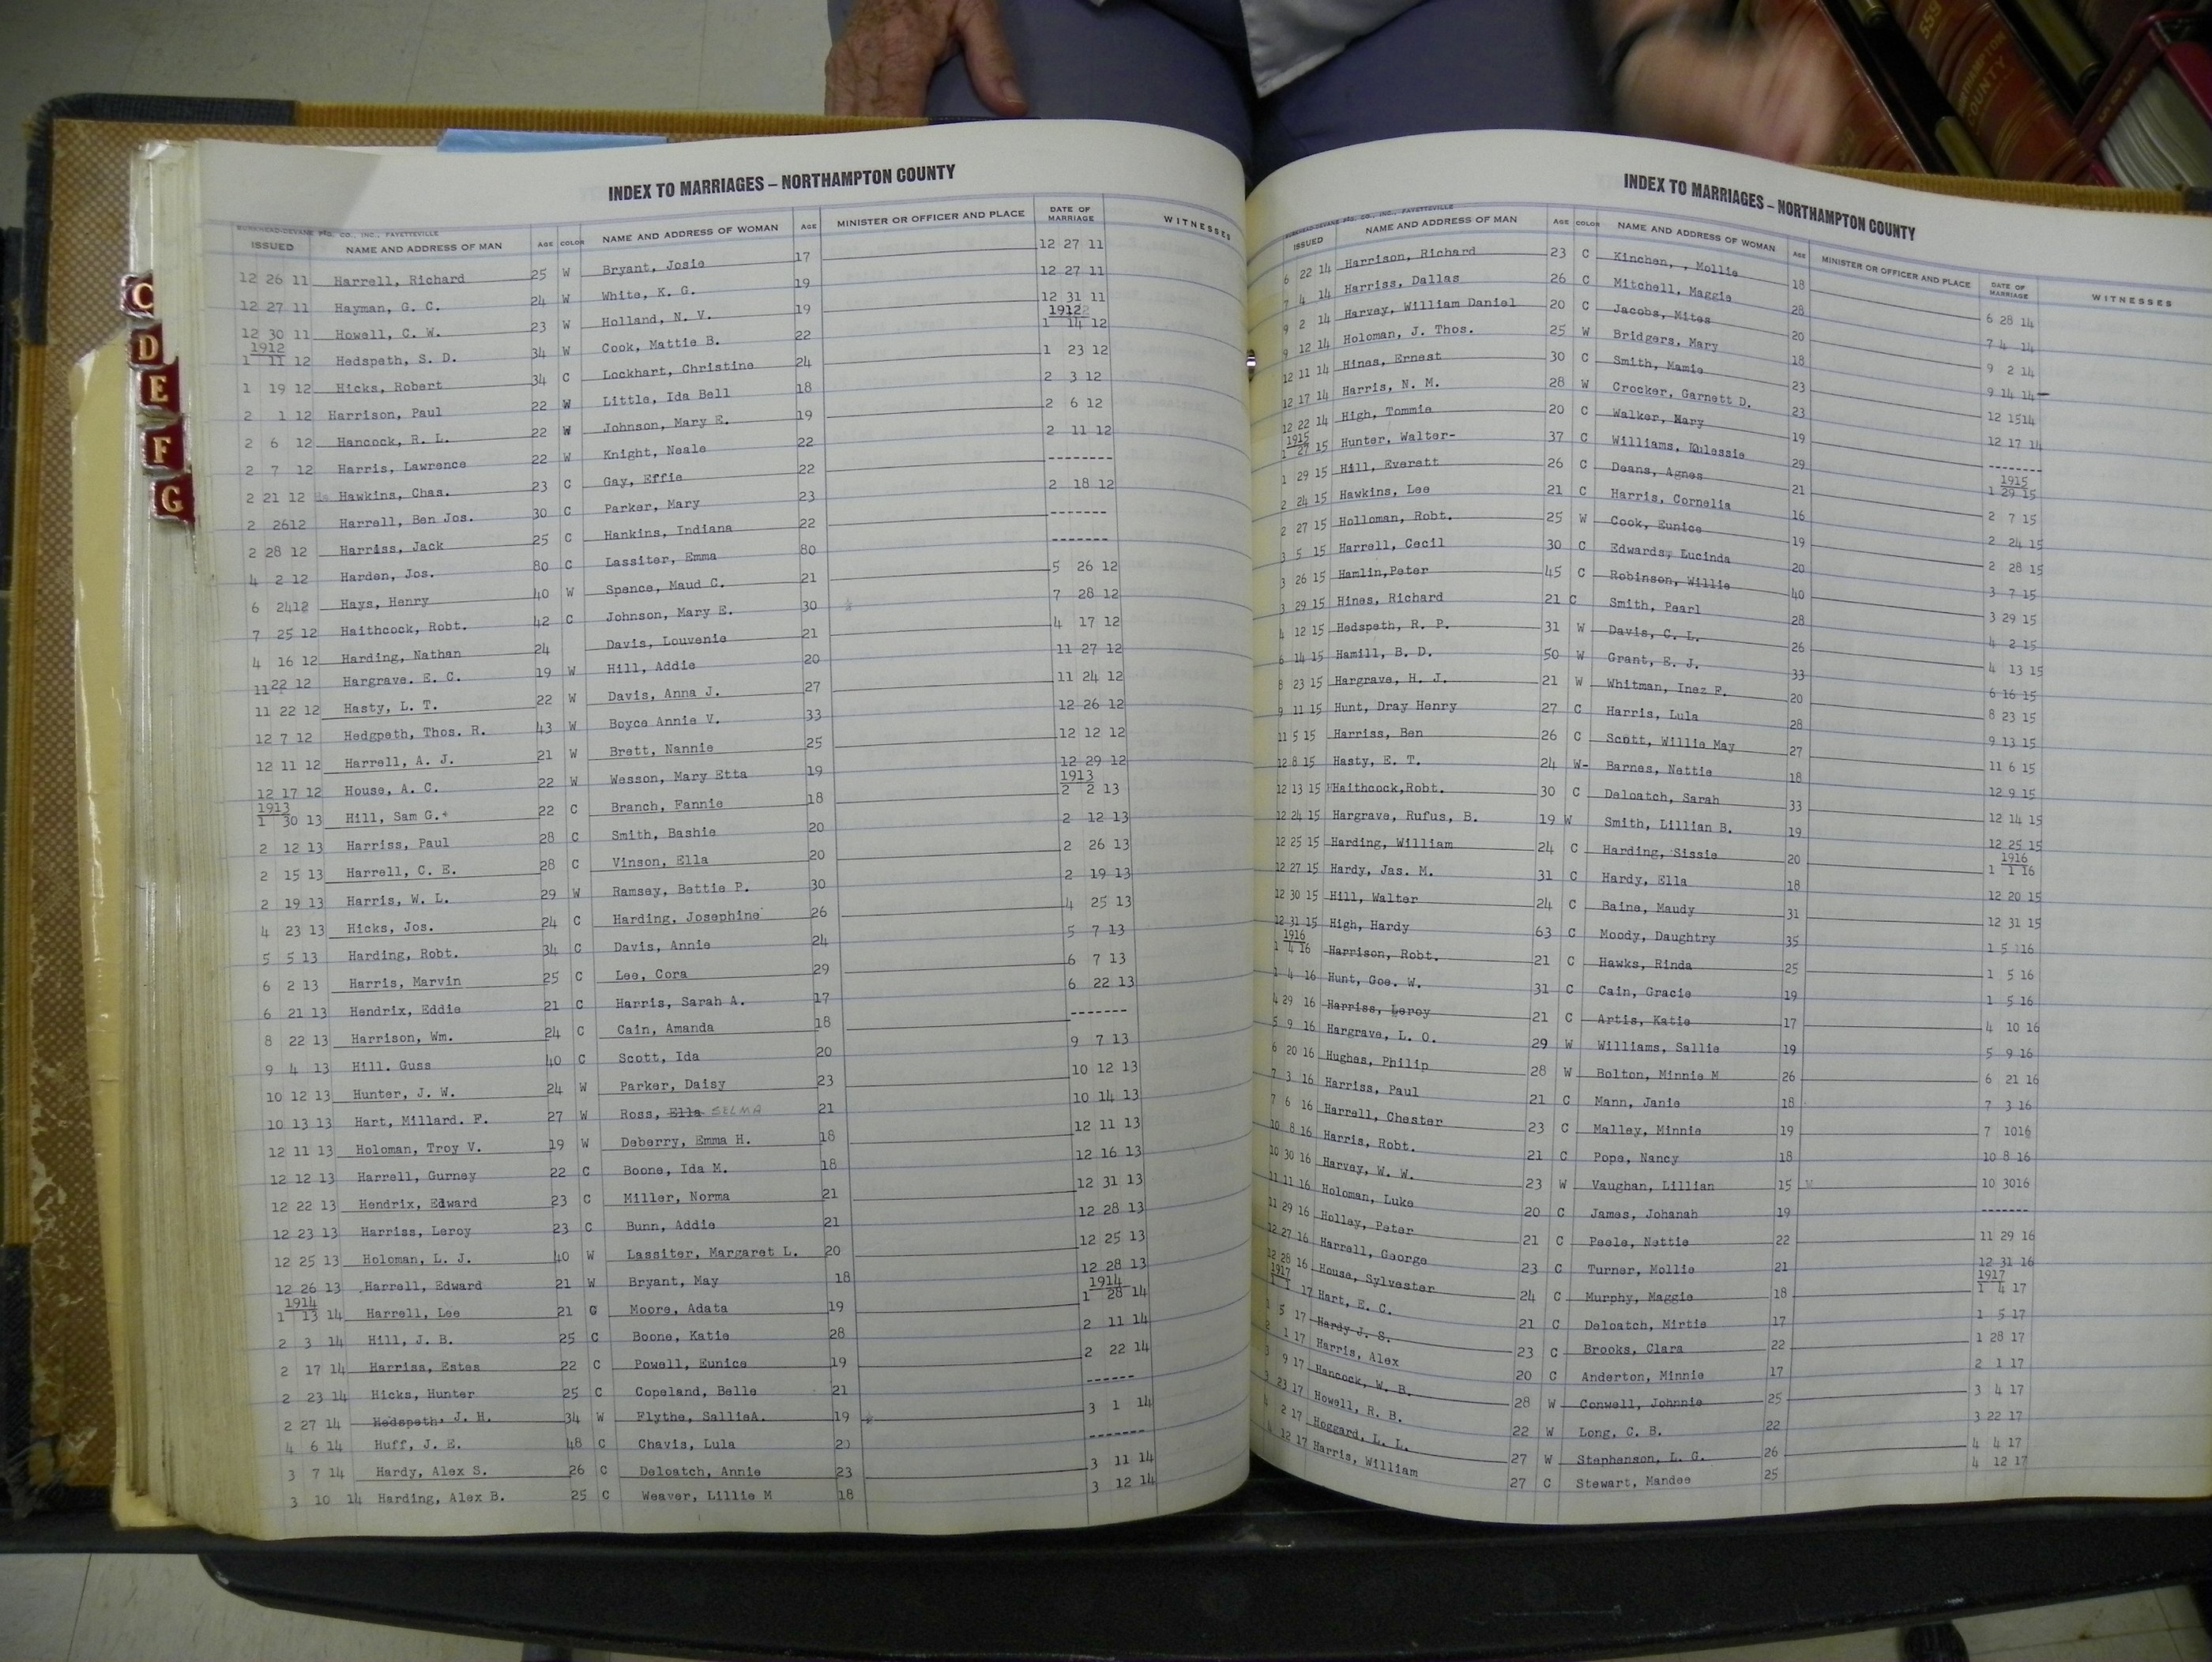 C
D
E
F
G
559
NORTHAMPTON
COUNTY
INDEX TO MARRIAGES – NORTHAMPTON COUNTY
BURKHEAD-DEVANE PTG. CO., INC., FAYETTEVILLE
ISSUED NAME AND ADDRESS OF MAN AGE COLOR NAME AND ADDRESS OF WOMAN AGE MINISTER OR OFFICER AND PLACE DATE OF MARRIAGE WITNESSES
12 26 11 Harrell, Richard 25 W Bryant, Josie 17 12 27 11
12 27 11 Hayman, G. C. 24 W White, K. G. 19 12 27 11
12 30 11 Howell, C. W. 23 W Holland, N. V. 19 12 31 11
1912 1912
1 11 12 Hedspeth, S. D. 34 W Cook, Mattie B. 22 1 14 12
1 19 12 Hicks, Robert 34 C Lockhart, Christine 24 1 23 12
2 1 12 Harrison, Paul 22 W Little, Ida Bell 18 2 3 12
2 6 12 Hancock, R. L. 22 W Johnson, Mary E. 19 2 6 12
2 7 12 Harris, Lawrence 22 W Knight, Neale 22 2 11 12
2 21 12 Hawkins, Chas. 23 C Gay, Effie 22 -------
2 2612 Harrell, Ben Jos. 30 C Parker, Mary 23 2 18 12
2 28 12 Harriss, Jack 25 C Hankins, Indiana 22 -------
4 2 12 Harden, Jos. 80 C Lassiter, Emma 80 -------
6 2412 Hays, Henry 40 W Spence, Maud C. 21 5 26 12
7 25 12 Haithcock, Robt. 42 C Johnson, Mary E. 30 7 28 12
4 16 12 Harding, Nathan 24 Davis, Louvenie 21 4 17 12
11 22 12 Hargrave. E. C. 19 W Hill, Addie 20 11 27 12
11 22 12 Hasty, L. T. 22 W Davis, Anna J. 27 11 24 12
12 7 12 Hedgpeth, Thos. R. 43 W Boyce Annie V. 33 12 26 12
12 11 12 Harrell, A. J. 21 W Brett, Nannie 25 12 12 12
12 17 12 House, A. C. 22 W Wesson, Mary Etta 19 12 29 12
1913 1913
1 30 13 Hill, Sam G. 22 C Branch, Fannie 18 2 2 13
2 12 13 Harriss, Paul 28 C Smith, Bashie 20 2 12 13
2 15 13 Harrell, C. E. 28 C Vinson, Ella 20 2 26 13
2 19 13 Harris, W. L. 29 W Ramsey, Bettie P. 30 2 19 13
4 23 13 Hicks, Jos. 24 C Harding, Josephine 26 4 25 13
5 5 13 Harding, Robt. 34 C Davis, Annie 24 5 7 13
6 2 13 Harris, Marvin 25 C Lee, Cora 29 6 7 13
6 21 13 Hendrix, Eddie 21 C Harris, Sarah A. 17 6 22 13
8 22 13 Harrison, Wm. 24 C Cain, Amanda 18 -------
9 4 13 Hill. Guss 40 C Scott, Ida 20 9 7 13
10 12 13 Hunter, J. W. 24 W Parker, Daisy 23 10 12 13
10 13 13 Hart, Millard. F. 27 W Ross, Ella SELMA 21 10 14 13
12 11 13 Holoman, Troy V. 19 W Deberry, Emma H. 18 12 11 13
12 12 13 Harrell, Gurney 22 C Boone, Ida M. 18 12 16 13
12 22 13 Hendrix, Edward 23 C Miller, Norma 21 12 31 13
12 23 13 Harriss, Leroy 23 C Bunn, Addie 21 12 28 13
12 25 13 Holoman, L. J. 40 W Lassiter, Margaret L. 20 12 25 13
12 26 13 Harrell, Edward 21 W Bryant, May 18 12 28 13
1914 1914
1 13 14 Harrell, Lee 21 C Moore, Adata 19 1 28 14
2 3 14 Hill, J. B. 25 C Boone, Katie 28 2 11 14
2 17 14 Harriss, Estes 22 C Powell, Eunice 19 2 22 14
2 23 14 Hicks, Hunter 25 C Copeland, Belle 21 ------
2 27 14 Hedspeth, J. H. 34 W Flythe, SallieA. 19 3 1 14
4 6 14 Huff, J. E. 48 C Chavis, Lula 20 -------
3 7 14 Hardy, Alex S. 26 C Deloatch, Annie 23 3 11 14
3 10 14 Harding, Alex B. 25 C Weaver, Lillie M 18 3 12 14
INDEX TO MARRIAGES – NORTHAMPTON COUNTY
BURKHEAD-DEVANE PTG. CO., INC., FAYETTEVILLE
ISSUED NAME AND ADDRESS OF MAN AGE COLOR NAME AND ADDRESS OF WOMAN AGE MINISTER OR OFFICER AND PLACE DATE OF MARRIAGE WITNESSES
6 22 14 Harrison, Richard 23 C Kinchen, , Mollie 18 6 28 14
7 4 14 Harriss, Dallas 26 C Mitchell, Maggie 28 7 4 14
9 2 14 Harvey, William Daniel 20 C Jacobs, Mites 20 9 2 14
9 12 14 Holoman, J. Thos. 25 W Bridgers, Mary 18 9 14 14
12 11 14 Hines, Ernest 30 C Smith, Mamie 23 12 1514
12 17 14 Harris, N. M. 28 W Crocker, Garnett D. 23 12 17 14
12 22 14 High, Tommie 20 C Walker, Mary 19 -------
1915 1915
1 27 15 Hunter, Walter- 37 C Williams, Eulessie 29 1 29 15
1 29 15 Hill, Everett 26 C Deans, Agnes 21 2 7 15
2 24 15 Hawkins, Lee 21 C Harris, Cornelia 16 2 24 15
2 27 15 Holloman, Robt. 25 W Cook, Eunice 19 2 28 15
3 5 15 Harrell, Cecil 30 C Edwards, Lucinda 20 3 7 15
3 26 15 Hamlin,Peter 45 C Robinson, Willie 40 3 29 15
3 29 15 Hines, Richard 21 C Smith, Pearl 28 4 2 15
4 12 15 Hedspeth, R. P. 31 W Davis, C. L. 26 4 13 15
6 14 15 Hamill, B. D. 50 W Grant, E. J. 33 6 16 15
8 23 15 Hargrave, H. J. 21 W Whitman, Inez F. 20 8 23 15
9 11 15 Hunt, Dray Henry 27 C Harris, Lula 28 9 13 15
11 5 15 Harriss, Ben 26 C Scott, Willie May 27 11 6 15
12 8 15 Hasty, E. T. 24 W- Barnes, Nettie 18 12 9 15
12 13 15 Haithcock,Robt. 30 C Deloatch, Sarah 33 12 14 15
12 24 15 Hargrave, Rufus, B. 19 W Smith, Lillian B. 19 12 25 15
1916
12 25 15 Harding, William 24 C Harding, Sissie 20 1 1 16
12 27 15 Hardy, Jas. M. 31 C Hardy, Ella 18 12 20 15
12 30 15 Hill, Walter 24 C Baine, Maudy 31 12 31 15
12 31 15 High, Hardy 63 C Moody, Daughtry 35 1 5 16
1916
1 4 16 Harrison, Robt. 21 C Hawks, Rinda 25 1 5 16
1 4 16 Hunt, Goe. W. 31 C Cain, Gracie 19 1 5 16
4 29 16 Harriss, Leroy 21 C Artis, Katie 17 4 10 16
5 9 16 Hargrave, L. O. 29 W Williams, Sallie 19 5 9 16
6 20 16 Hughes, Philip 28 W Bolton, Minnie M 26 6 21 16
7 3 16 Harriss, Paul 21 C Mann, Janie 18 7 3 16
7 6 16 Harrell, Chester 23 C Malley, Minnie 19 7 1016
10 8 16 Harris, Robt. 21 C Pope, Nancy 18 10 8 16
10 30 16 Harvey, W. W. 23 W Vaughan, Lillian 15 10 3016
11 11 16 Holoman, Luke 20 C James, Johanah 19 -------
11 29 16 Holley, Peter 21 C Peele, Nettie 22 11 29 16
12 27 16 Harrell, George 23 C Turner, Mollie 21 12 31 16
1917
12 28 16 House, Sylvester 24 C Murphy, Maggie 18 1 4 17
1917
1 1 17 Hart, E. C. 21 C Deloatch, Mirtie 17 1 5 17
1 5 17 Hardy J. S. 23 C Brooks, Clara 22 1 28 17
2 1 17 Harris, Alex 20 C Anderton, Minnie 17 2 1 17
3 9 17 Hancock, W. B. 28 W Conwell, Johnnie 25 3 4 17
3 23 17 Howell, R. B. 22 W Long, C. B. 22 3 22 17
4 2 17 Hoggard, L. L. 27 W Stephenson, L. G. 26 4 4 17
4 12 17 Harris, William 27 C Stewart, Mandee 25 4 12 17